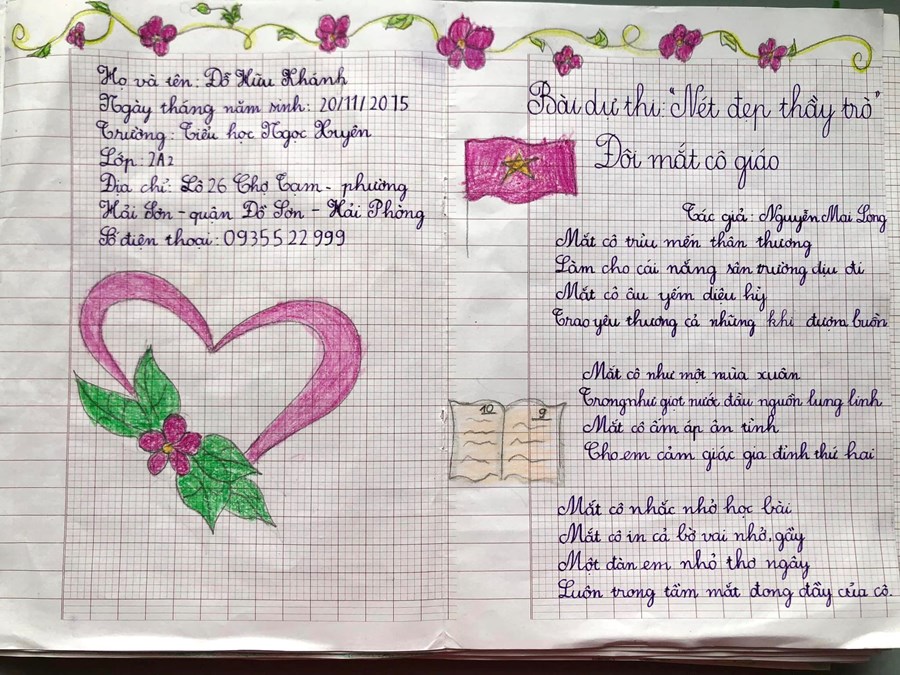 Họ và tên: Đỗ Hữu Khánh
Ngày tháng năm sinh: 20/11/2015
Trường: Tiểu học Ngọc Xuyên
Lớp: 2A2
Địa chỉ: Lô 26 Chợ Tam - phường
Hải Sơn - quận Đồ Sơn - Hải Phòng
Số điện thoại: 0935522999
Bài dự thi: "Nét đẹp thầy trò"
Đôi mắt cô giáo
Tác giả: Nguyễn Mai Long
Mắt cô trìu mến thân thương
Làm cho cái nắng sân trường dịu đi
Mắt cô âu yếm diệu kỳ
Trao yêu thương cả những khi đượm buồn
Mắt cô như một mùa xuân
Trong như giọt nước đầu nguồn lung linh
Mắt cô ấm áp ân tình
Cho em cảm giác gia đình thứ hai
10 9
Mắt cô nhắc nhở học bài
Mắt cô in cả bờ vai nhỏ, gầy
Một đàn em nhỏ thơ ngây
Luôn trong tầm mắt đong đầy của cô.